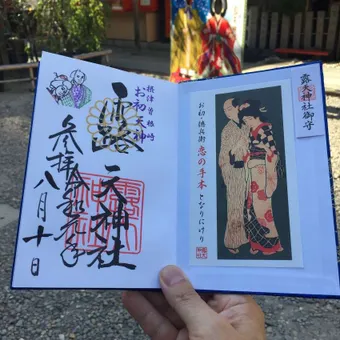 露天神社御守
お初・徳兵衛
恋の手本
となりにけり
摂津曽根崎
お初天神
露
天神社
参拝令和元年
八月十日